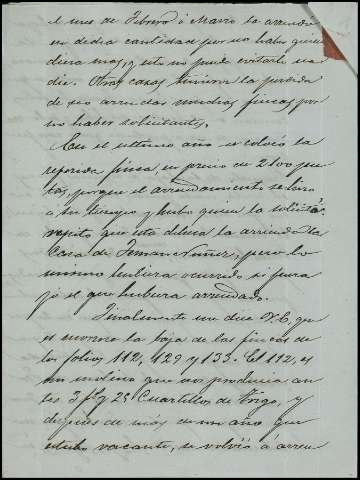 el mes de Febrero ó Marzo la arrendó
en dicha cantidad por no haber quien
diera mas, y esto no puede evitarlo na
die. Otras casas tuvieron la perdida
de no arrendar muchas fincas por
no haber solicitantes.
En el ultimo año se colocó la
referida finca, en precio de 2100 pese
tas, porque el arrendamiento se hizo
a su tiempo y hubo quien la solicitá
repito que esto debera la arriendo la
casa de Fernan-Nuñez, pero lo
mismo hubiera ocurrido si fuera
yo el que hubiera arrendado.
Finalmente me dice V.E. que
es enorme la baja de las fincas de
los folios 112, 129 y 133. El 112, es
un molino que no producia an
tes 3 fgs y 25 Cuartillos de trigo, y
despues de más de un año que
estubo vacante, se volvió á arren